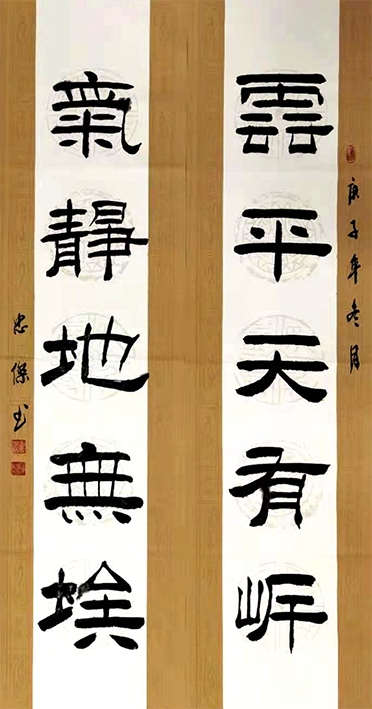 庚子年冬月
雲平天有
氣靜地無埃
忠傑书